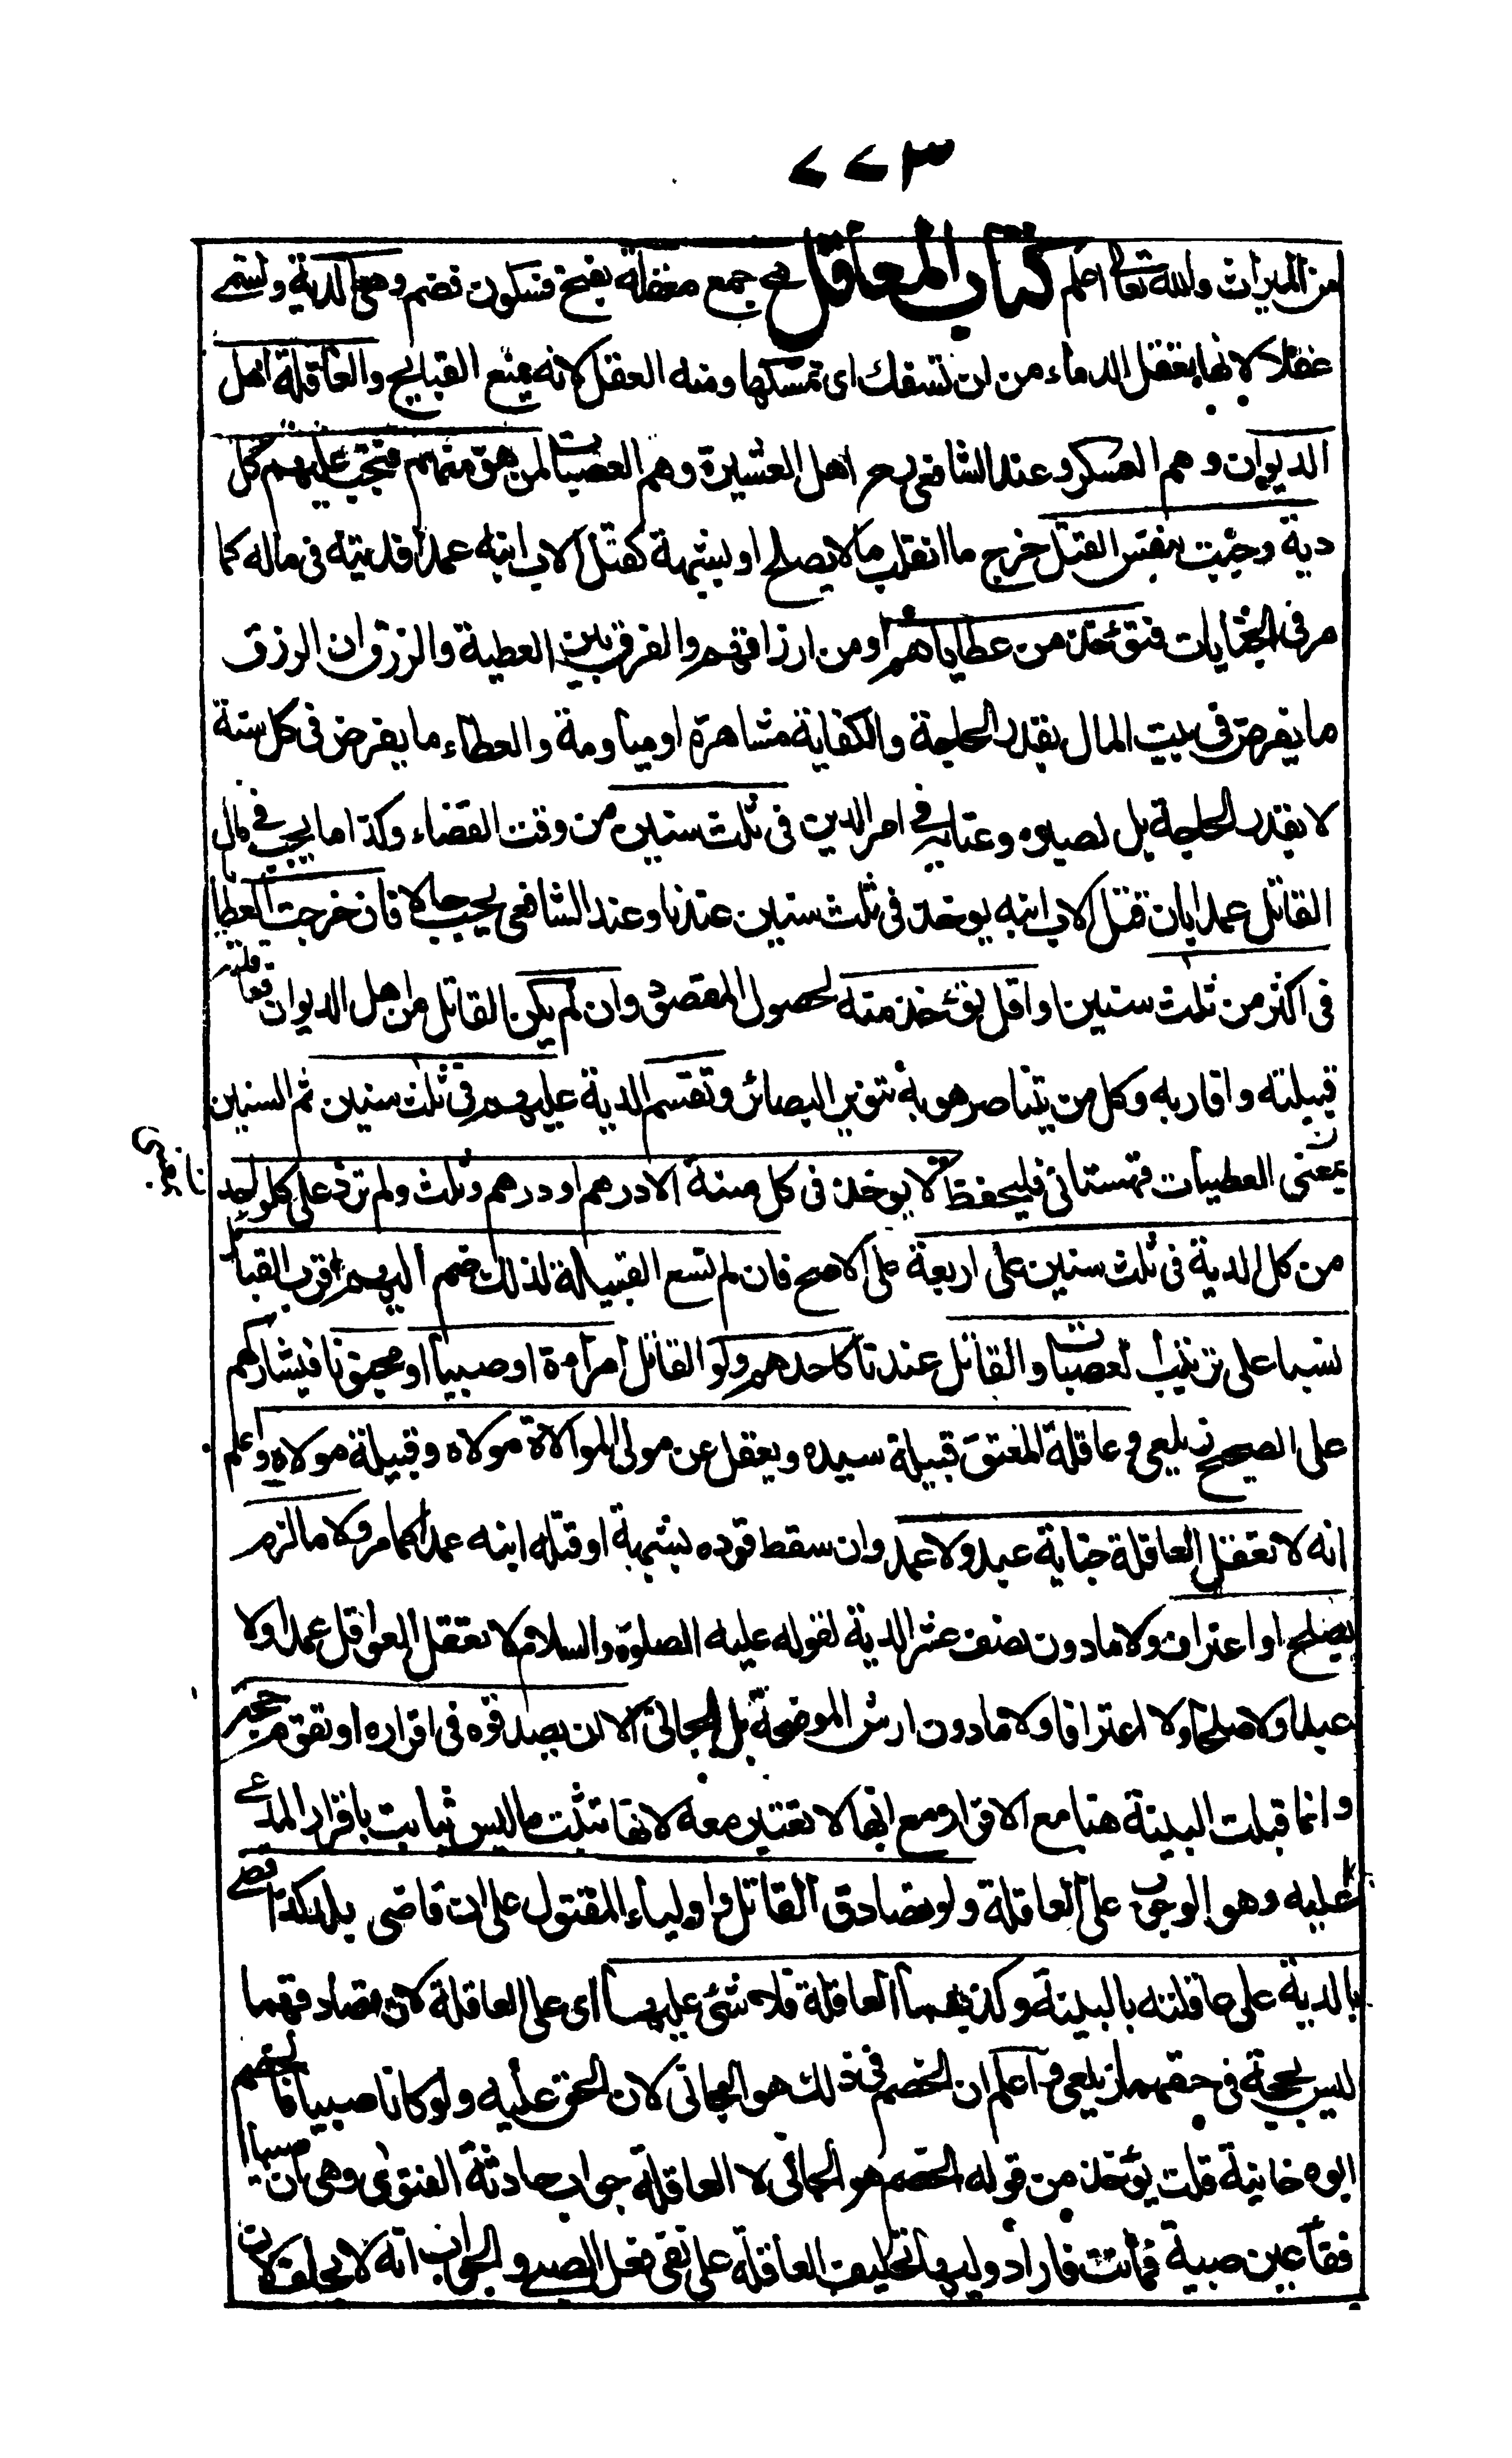 ٧٧٣
من الميراث والله تعالى اعلم كتاب المعاقل هي جمع معقلة بفتح فسكون فضم وهي الدية وتسمى
عقلا لانها تعقل الدماء من ان تسفك اى تمسكها ومنه العقل لانه يمنع القبايح والعاقلة اهل
الديوان وهم العسكر وعند الشافعي رح اهل العشيرة وهم العصبات لمن هو منهم فتجب عليهم كل
دية وجبت بنفس القتل خرج ما انقلب مالا بصلح او بشبهة كقتل الاب ابنه عمدا فديته فى ماله كما
مر فى الجنايات فتؤخذ من عطاياهم او من ارزاقهم والفرق بين العطية والرزق ان الرزق
ما يفرض فى بيت المال بقدر الحاجة والكفاية مشاهرة او مياومة والعطاء ما يفرض فى كل سنة
لا بقدر الحاجة بل لصبره وعنايه فى امر الدين فى ثلث سنين من وقت القضاء وكذا ما يجب فى مال
القاتل عمدا بان قتل الاب ابنه يوخذ فى ثلث سنين عندنا وعند الشافعي يجب حالا فان خرجت العطايا
فى اكثر من ثلث سنين او اقل تؤخذ منه لحصول المقصود وان لم يكن القاتل من اهل الديوان فعاقلته
قبيلته واقاربه وكل من يتناصر هو به تنوير البصائر وتقسم الدية عليهم فى ثلث سنين ثم السنين
بمعنى العطيات قهستانى فليحفظ لا يوخذ فى كل سنة الا درهم او درهم وثلث ولم تزد على كل واحد
من كل الدية فى ثلث سنين على اربعة على الاصح فان لم تسع القبيلة لذلك ضم اليهم اقرب القبائل
نسبا على ترتيب العصبات والقاتل عندنا كاحدهم ولو القاتل امرأة او صبيا او مجنونا فيشاركهم
على الصحيح زيلعى وعاقلة المعتق قبيلة سيده ويعقل عن مولى الموالاة مولاه وقبيلة مولاه واعلم
انه لا تعقل العاقلة جناية عبد ولا عمد وان سقط قوده بشبهة او قتله ابنه عمدا كما مر ولا ما لزم
بصلح او اعتراف ولا ما دون نصف عشر الدية لقوله عليه الصلوة والسلام لا تعقل العواقل عمدا ولا
عبدا ولا صلحا ولا اعترافا ولا ما دون ارش الموضحة بل الجانى الا ان يصدقوه فى اقراره او تقوم حجة
وانما قبلت البينة هنا مع الاقرار مع انها لا تعتبر معه لانها تثبت ما ليس ثبابت باقرار المدعى
عليه وهو الوجوب على العاقلة ولو تصادق القاتل واولياء المقتول على ان قاضى بلد كذا قضى
بالدية على عاقلته بالبينة وكذبهما العاقلة فلا شئ عليها اى على العاقلة لان تصادقهما
ليس بحجة فى حقهما زيلعى واعلم ان الخصم فى ذلك هو الجانى لان الحق عليه ولو كان صبيا فالخصم
ابوه خانية قلت يؤخذ من قوله الخصم هو الجانى لا العاقلة جواب حادثة الفتوى وهى ان صبيا
فقأ عين صبية فماتت فاراد وليها تحليف العاقلة على نفى فعل الصبى والجواب انه لا يحلف لان